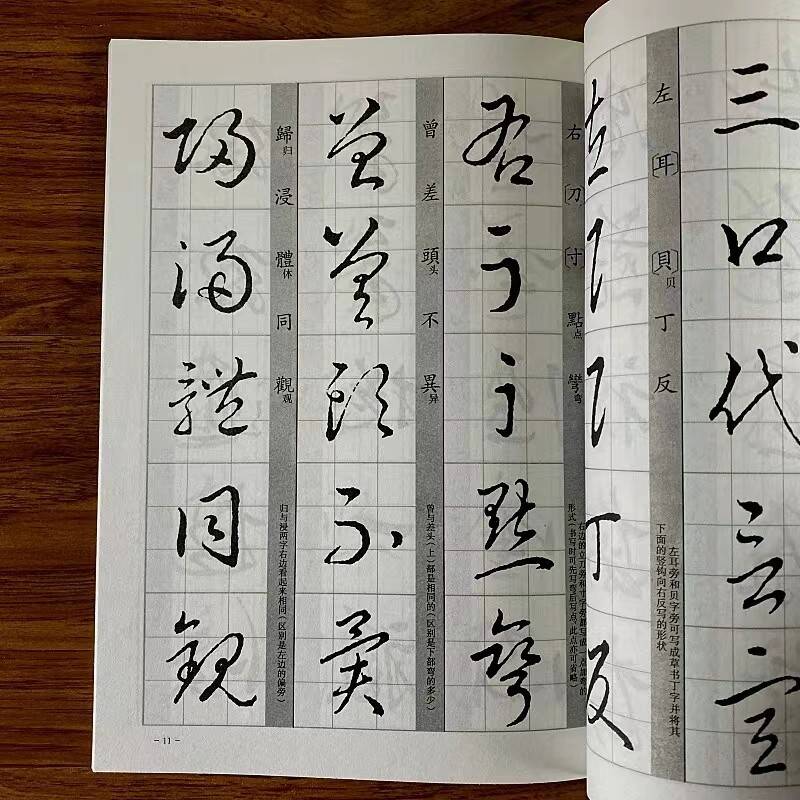 三口代
左[耳][貝]贝丁反
左耳旁和贝字旁可写成草书丁字并将其
下面的竖钩向右反写的形状
丁反
右[刀][寸]點点彎弯
右边的立刀旁和寸字旁都写成一点加弯的
形式(书写时可先写弯后写点,此点亦可省略)
右刀寸點彎
曾差頭头不異异
曾与差头(上)部是相同的(区别是下部弯的多少)
曾差頭不異
歸归浸體休同觀观
归与浸两字右边看起来相同(区别是左边的偏旁)
歸浸體同觀
-11-